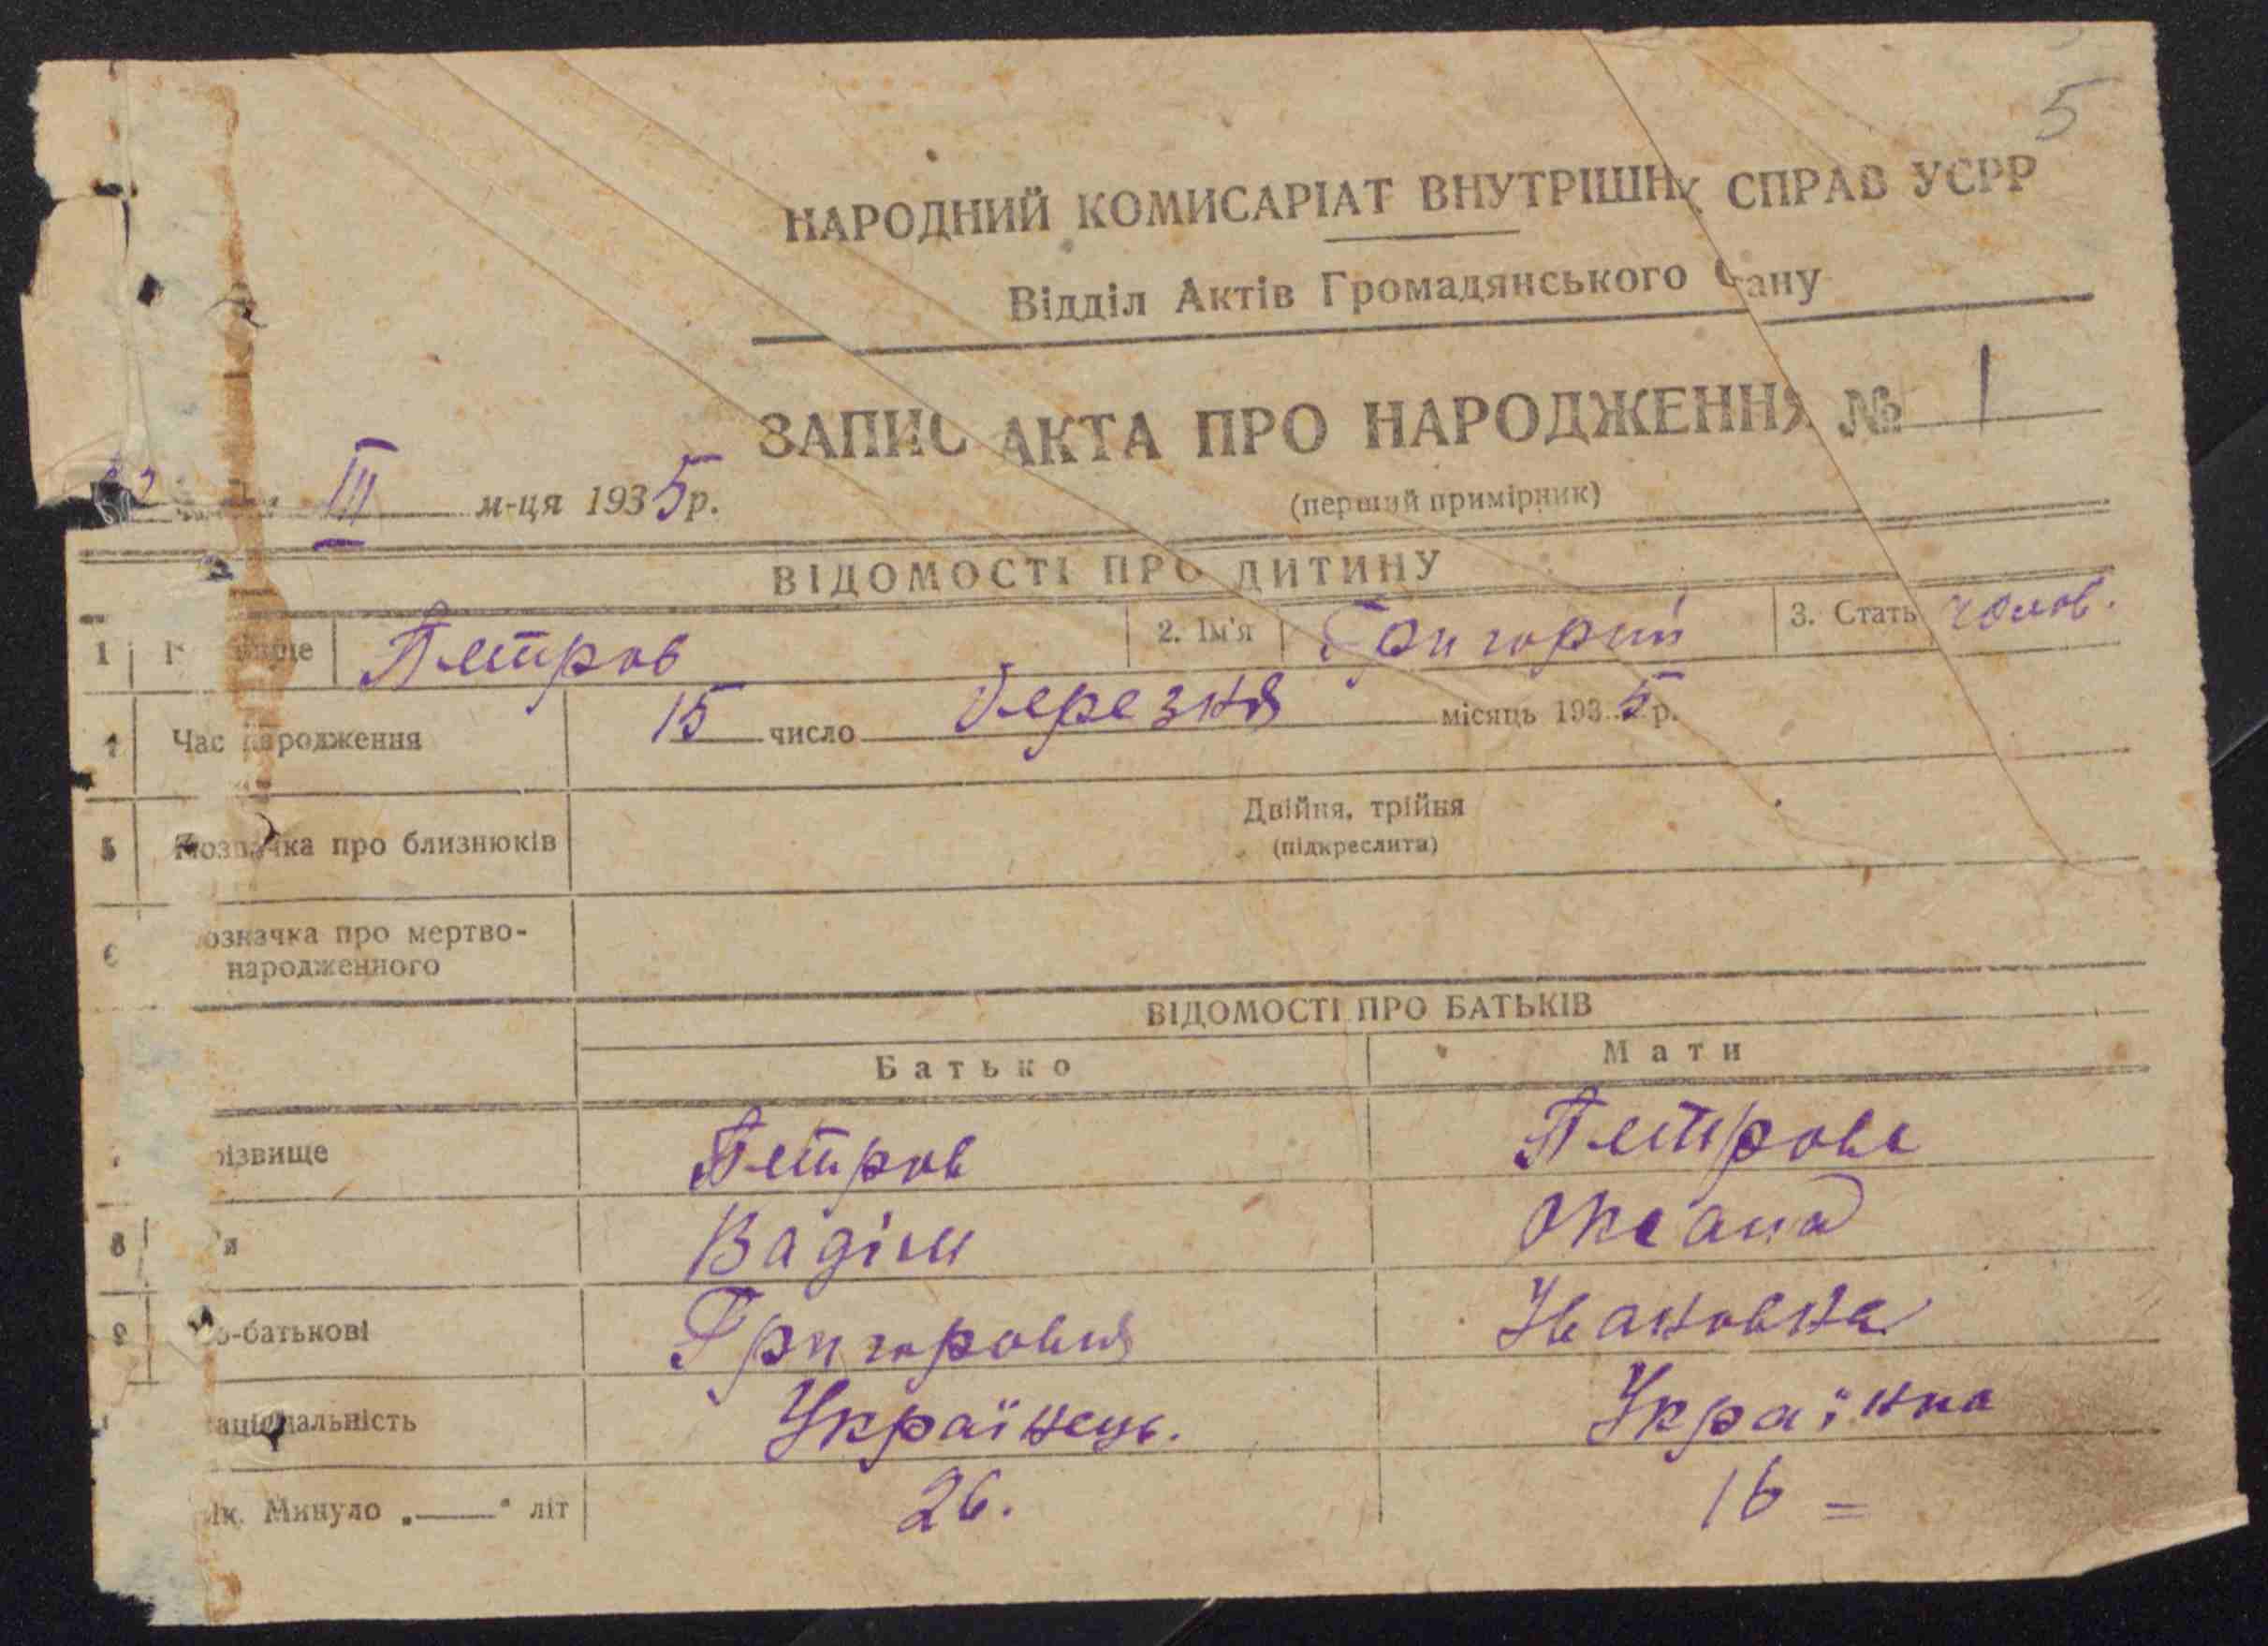 5
НАРОДНИЙ КОМИСАРІАТ ВНУТРІШН Х СПРАВ УСРР
Відділ Актів Громадянського Стану
ЗАПИС АКТА ПРО НАРОДЖЕННЯ № 1
III м-ця 1935 р.
(перший примірник)
ВІДОМОСТІ ПРО ДИТИНУ
1 Петров 2. Ім'я Григорий 3. Стать чолов.
Час народження 15 число березня місяць 1935 р.
Двійня, трійня
5 Позначка про близнюків
(підкреслити)
6 означка про мертво-
народженного
ВІДОМОСТІ ПРО БАТЬКІВ
Батько Мати
різвище Петров Петрова
8 Вадім Оксана
9 о-батькові Григоровия Івановна
аціональність Українець. Українка
ік. Минуло „——" літ 26. 16 =